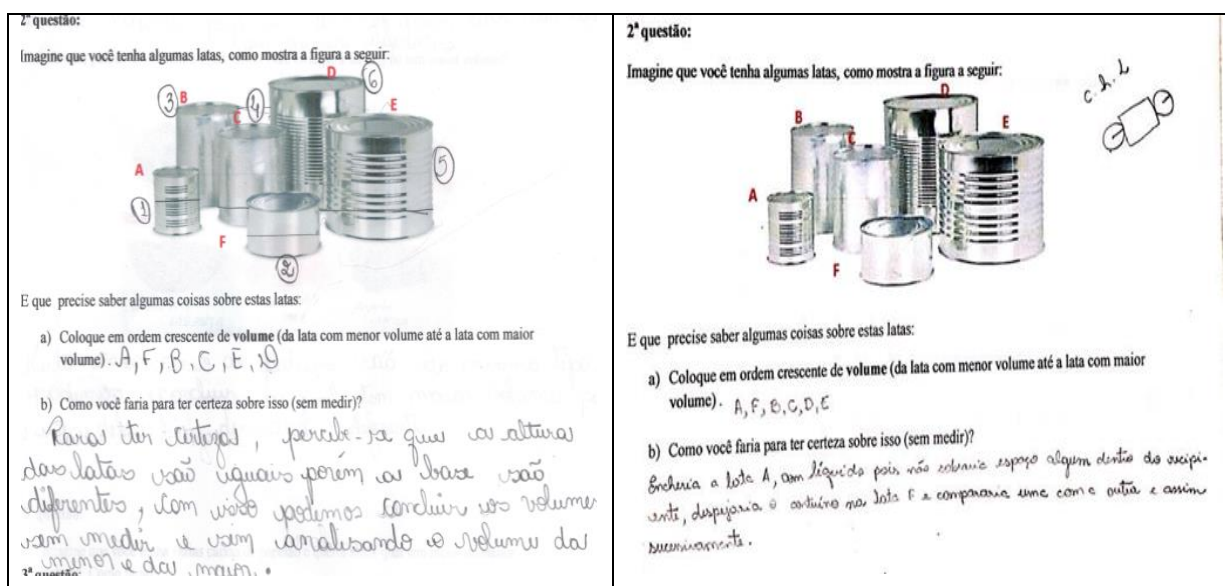 2ª questão:
Imagine que você tenha algumas latas, como mostra a figura a seguir:
D 6
3 B 4
C E
A 5
1
F
2
E que precise saber algumas coisas sobre estas latas:
a) Coloque em ordem crescente de volume (da lata com menor volume até a lata com maior
volume). A, F, B, C, E, D
b) Como você faria para ter certeza sobre isso (sem medir)?
Para ter certeza, percebe-se que a altura
das latas são iguais porém a base são
diferentes, com isso podemos concluir os volumes
sem medir e sim analisando o volume da
menor e da maior.
3ª questão:
2ª questão:
Imagine que você tenha algumas latas, como mostra a figura a seguir:
c. h. L
D
B E
C
A
F
E que precise saber algumas coisas sobre estas latas:
a) Coloque em ordem crescente de volume (da lata com menor volume até a lata com maior
volume). A, F, B, C, D, E
b) Como você faria para ter certeza sobre isso (sem medir)?
Encheria a lata A, com líquido pois não sobraria espaço algum dentro do recipi-
ente, despejaria o contuino na lata F e compararia uma com a outra e assim
sucessivamente.